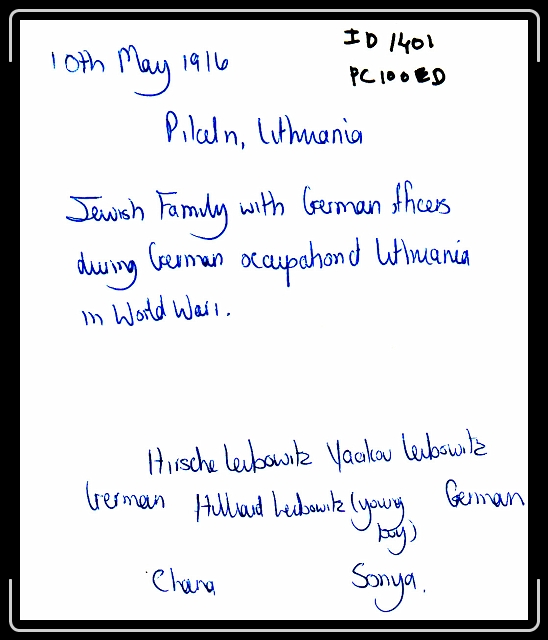 10th May 1916
ID 1401
PC100ED
Pilaln, Lithuania
Jewish Family with German officers
during German occupation of Lithuania
in World War 1.
Hirsche Leibowitz Yaakov Leibowitz
German Leibowitz (young German
boy)
Chana Sonya.